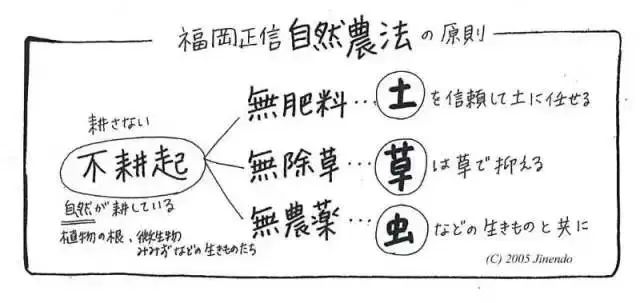 福岡正信 自然農法 の原則
耕さない
不耕起
自然が耕している
植物の根、微生物
みみずなどの生きものたち
無肥料…土を信頼して土に任せる
無除草…草は草で抑える
無農薬…虫などの生きものと共に
(C) 2005 Jinendo